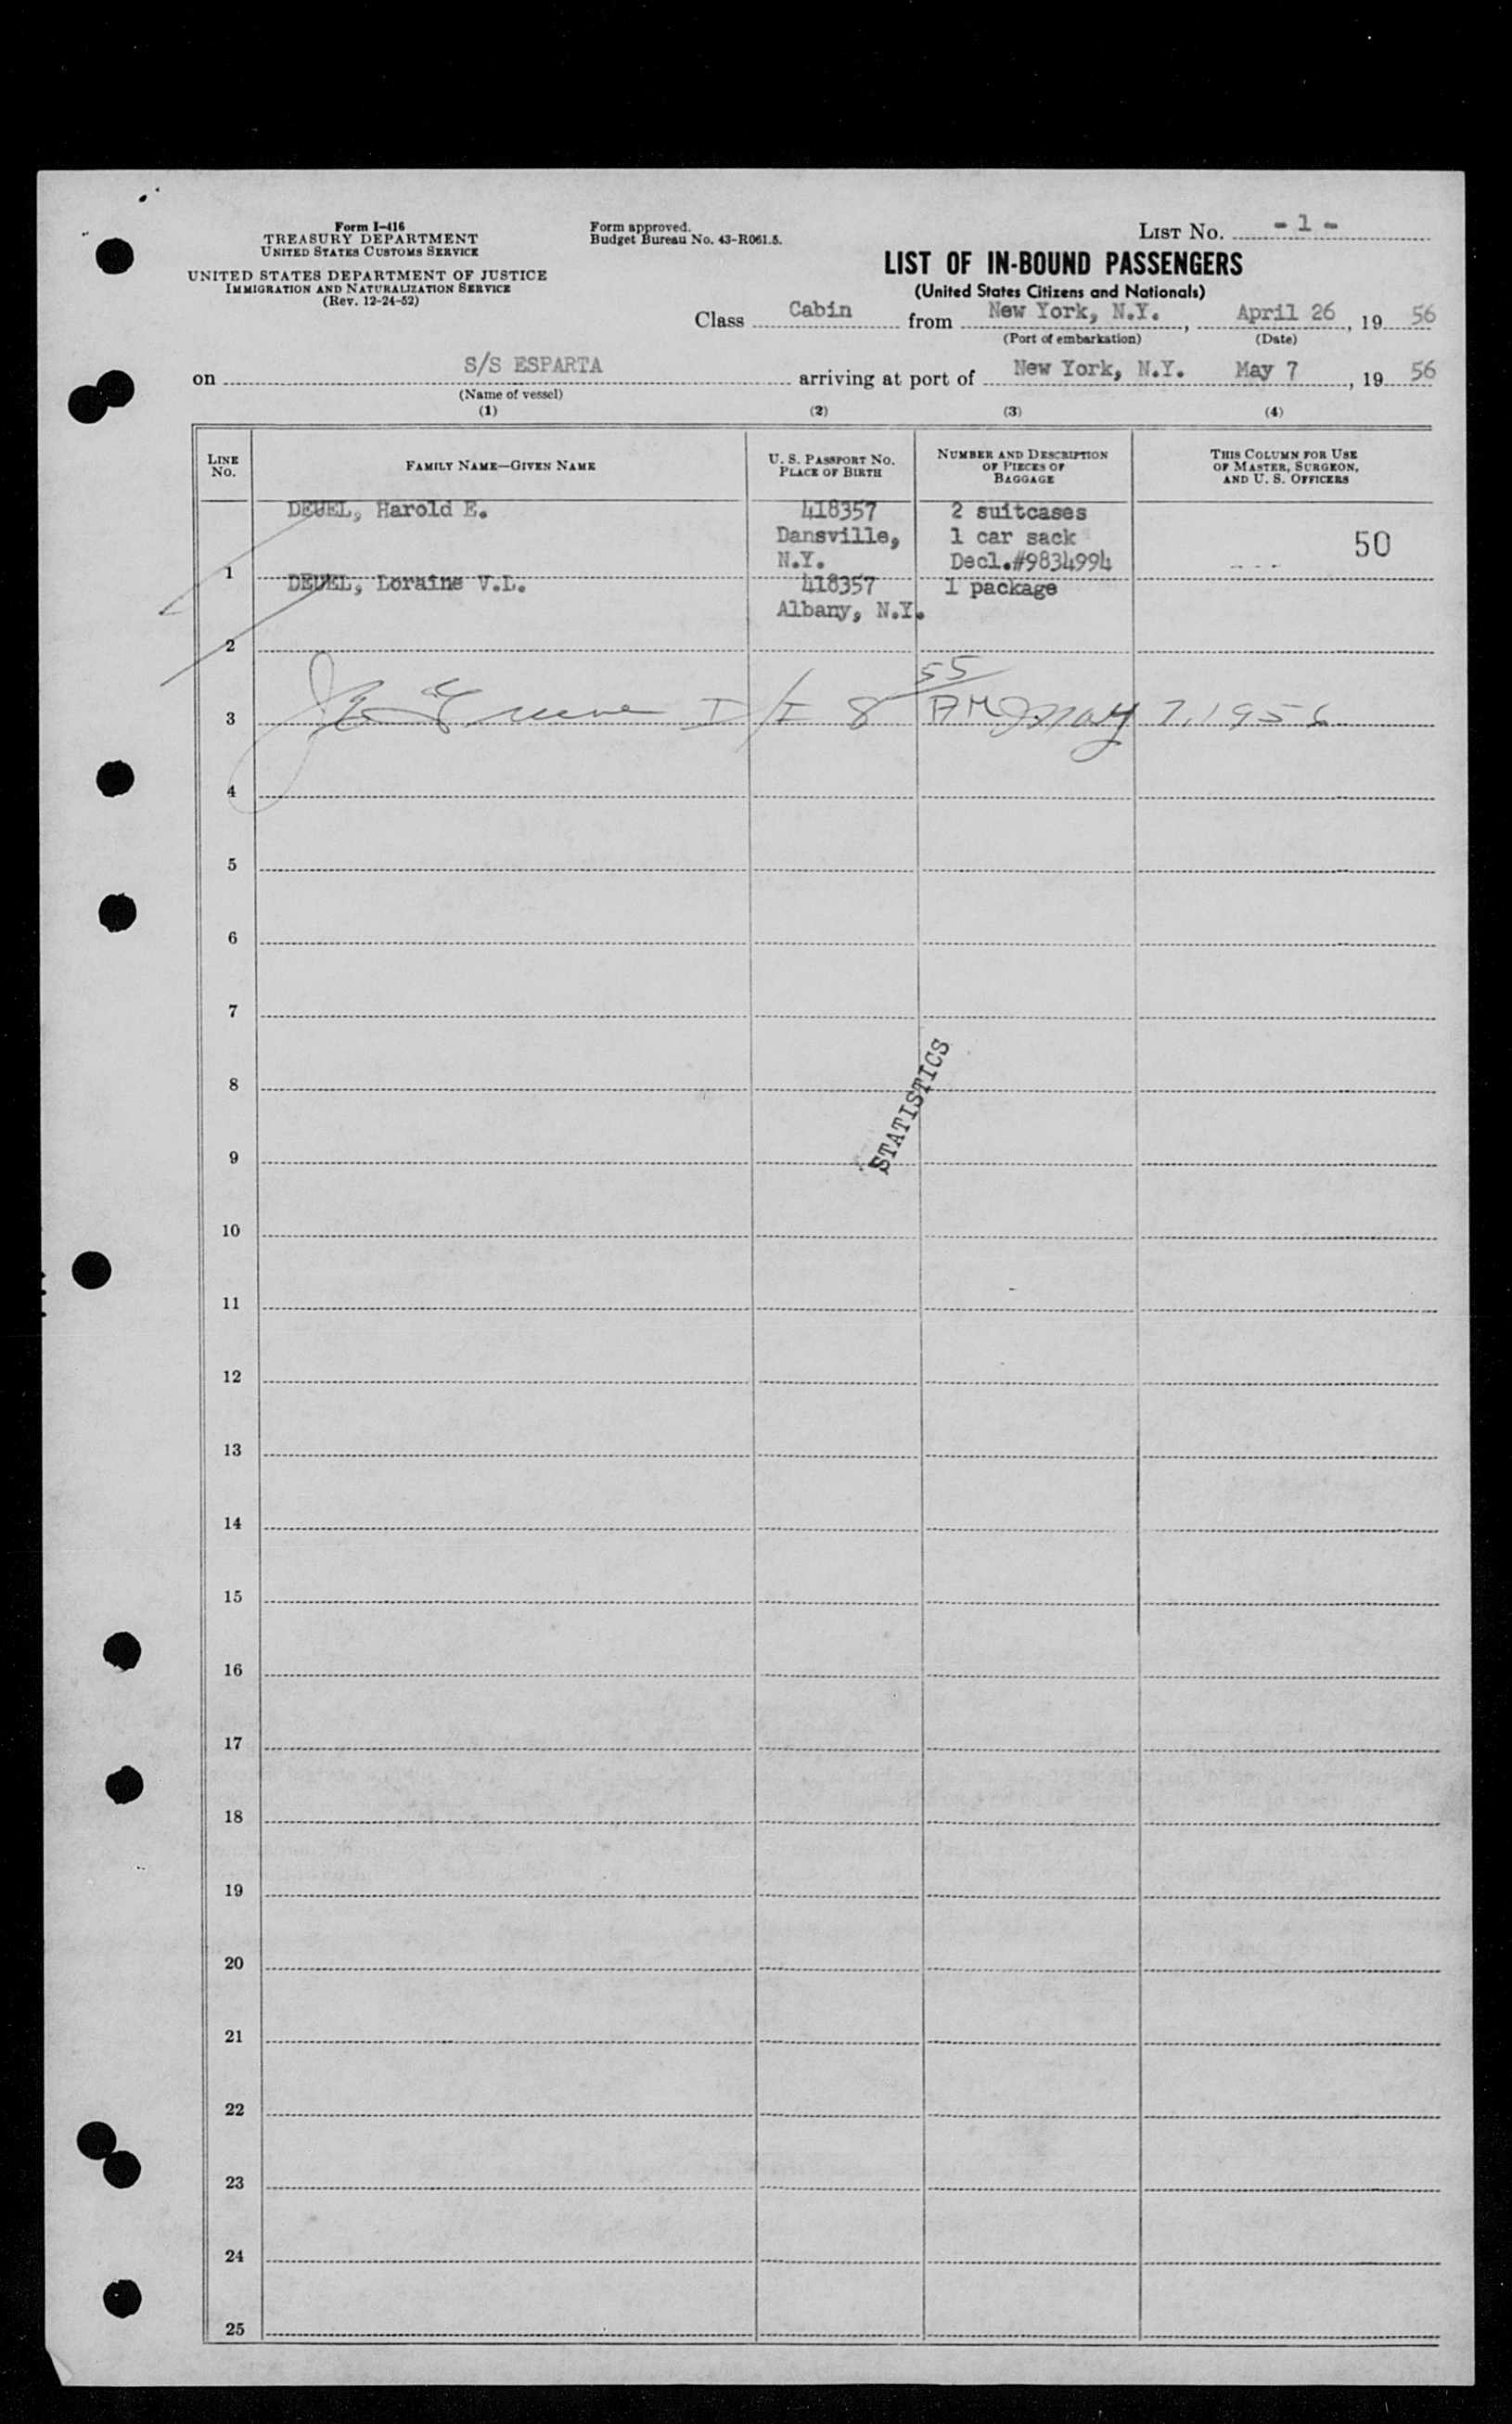 Form I-416
TREASURY DEPARTMENT
UNITED STATES CUSTOMS SERVICE
UNITED STATES DEPARTMENT OF JUSTICE
IMMIGRATION AND NATURALIZATION SERVICE
(Rev. 12-24-52)
Form approved.
Budget Bureau No. 43-R061.5.
LIST No. - 1 -
LIST OF IN-BOUND PASSENGERS
(United States Citizens and Nationals)
Class Cabin from New York, N.Y., April 26, 19 56
(Port of embarkation) (Date)
on S/S ESPARTA arriving at port of New York, N.Y. May 7, 19 56
(Name of vessel)
(1) (2) (3) (4)
LINE NO. FAMILY NAME—GIVEN NAME U. S. PASSPORT NO. PLACE OF BIRTH NUMBER AND DESCRIPTION OF PIECES OF BAGGAGE THIS COLUMN FOR USE OF MASTER, SURGEON, AND U. S. OFFICERS
DEUEL, Harold E. 418357 2 suitcases
Dansville, 1 car sack 50
1 N.Y. Decl.#9834994
DEUEL, Loraine V.L. 418357 1 package
Albany, N.Y.
2
3 I/I 8 55 AM May 7, 1956
4
5
6
7
8
STATISTICS
9
10
11
12
13
14
15
16
17
18
19
20
21
22
23
24
25